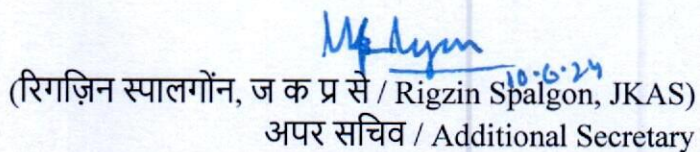 10.6.24
(रिगज़िन स्पालगोंन, ज क प्र से / Rigzin Spalgon, JKAS)
अपर सचिव / Additional Secretary